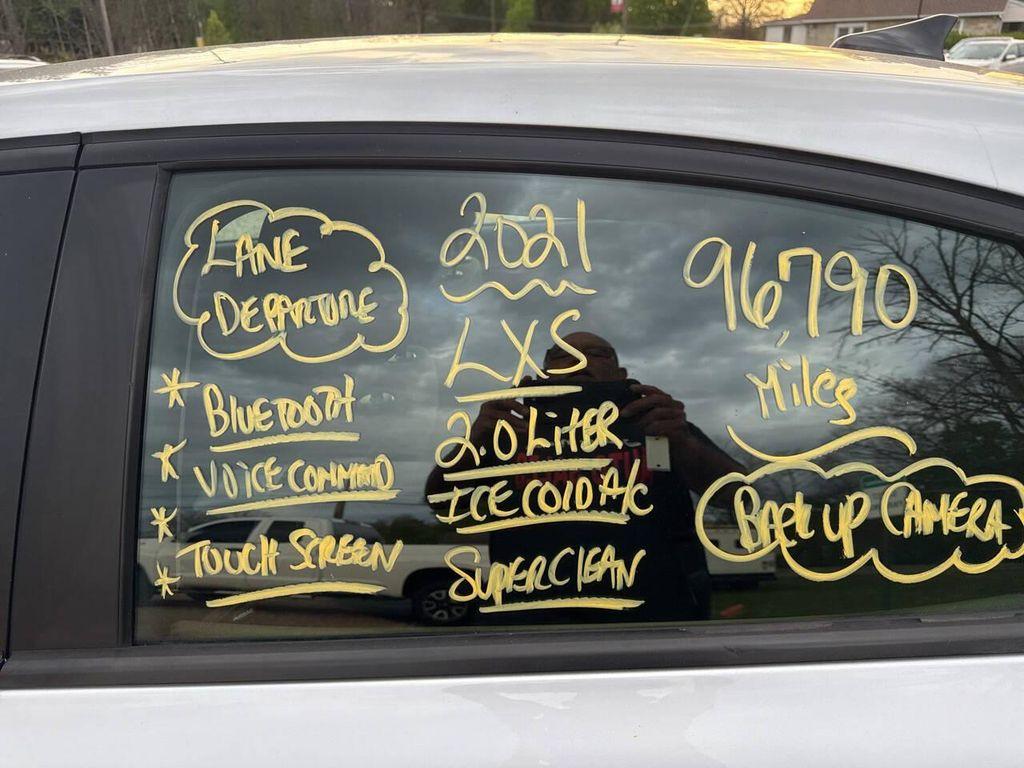 LANE
DEPARTURE
* BLUETOOTH
* VOICE COMMAND
* TOUCH SCREEN
*
2021
LXS
2.0 LiTER
ICE COLD A/C
SUPER CLEAN
96,790
Miles
BACK UP CAMERA